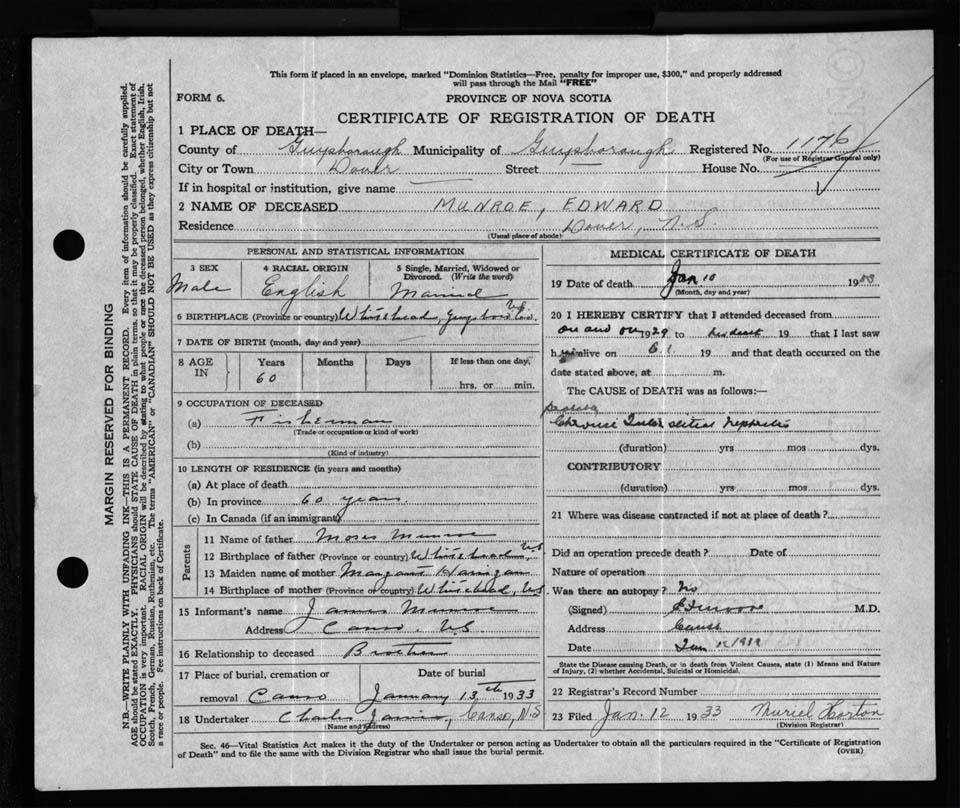 This form if placed in an envelope, marked "Dominion Statistics—Free, penalty for improper use, $300," and properly addressed
will pass through the Mail "FREE"
FORM 6.
PROVINCE OF NOVA SCOTIA
CERTIFICATE OF REGISTRATION OF DEATH
1 PLACE OF DEATH—
County of Guysborough Municipality of Guysborough Registered No. 1176
(For use of Registrar General only)
City or Town Dover Street House No.
If in hospital or institution, give name
2 NAME OF DECEASED MUNROE, EDWARD
Residence Dover, N.S
(Usual place of abode)
PERSONAL AND STATISTICAL INFORMATION
3 SEX 4 RACIAL ORIGIN 5 Single, Married, Widowed or Divorced. (Write the word)
Male English Married
6 BIRTHPLACE (Province or country) Whitehead, Guysboro Co. N.S.
7 DATE OF BIRTH (month, day and year)
8 AGE IN Years Months Days If less than one day,
60 hrs. or min.
9 OCCUPATION OF DECEASED
(a) Fisherman
(Trade or occupation or kind of work)
(b)
(Kind of industry)
10 LENGTH OF RESIDENCE (in years and months)
(a) At place of death
(b) In province 60 years.
(c) In Canada (if an immigrant)
Parents
11 Name of father Moses Munroe
12 Birthplace of father (Province or country) Whitehead, N.S
13 Maiden name of mother Margaret
14 Birthplace of mother (Province or country) Whitehead, N.S
15 Informant's name James Munroe
Address Canso, N.S
16 Relationship to deceased Brother
17 Place of burial, cremation or Date of burial
removal Canso January 13th 1933
18 Undertaker Charles Canso, N.S
(Name and address)
MEDICAL CERTIFICATE OF DEATH
19 Date of death Jan. 10 19
(Month, day and year)
20 I HEREBY CERTIFY that I attended deceased from
on and on 1929 to his death 19 that I last saw
h alive on 19 and that death occurred on the
date stated above, at m.
The CAUSE of DEATH was as follows:—
Chronic Interstitial Nephritis
(duration) yrs mos dys.
CONTRIBUTORY
(duration) yrs mos dys.
21 Where was disease contracted if not at place of death?
Did an operation precede death? Date of
Nature of operation
Was there an autopsy? No
(Signed) M.D.
Address Canso
Date Jan
State the Disease causing Death, or in death from Violent Causes, state (1) Means and Nature
of Injury, (2) whether Accidental, Suicidal or Homicidal.
22 Registrar's Record Number
23 Filed Jan. 12 1933 Muriel Horton
(Division Registrar)
Sec. 46—Vital Statistics Act makes it the duty of the Undertaker or person acting as Undertaker to obtain all the particulars required in the "Certificate of Registration
of Death" and to file the same with the Division Registrar who shall issue the burial permit. (OVER)
MARGIN RESERVED FOR BINDING
N.B.—WRITE PLAINLY WITH UNFADING INK—THIS IS A PERMANENT RECORD. Every item of information should be carefully supplied.
AGE should be stated EXACTLY. PHYSICIANS should STATE CAUSE OF DEATH in plain terms, so that it may be properly classified. Exact statement of
OCCUPATION is very important. RACIAL ORIGIN will be described by stating to what people or race the deceased person belonged, whether English, Irish,
Scotch, French, German, Russian, Ruthenian, etc. The terms "AMERICAN" or "CANADIAN" SHOULD NOT BE USED as they express citizenship but not
a race or people. See instructions on back of Certificate.